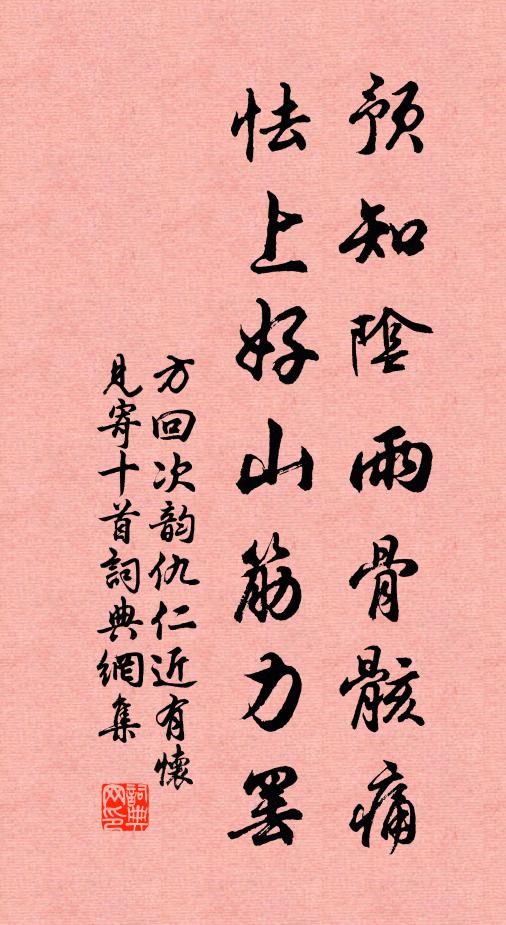 預知陰雨骨骸痛
怯上好山筋力罢
方回次韵仇仁近有懷
見寄十首詞典網集
詞典网印